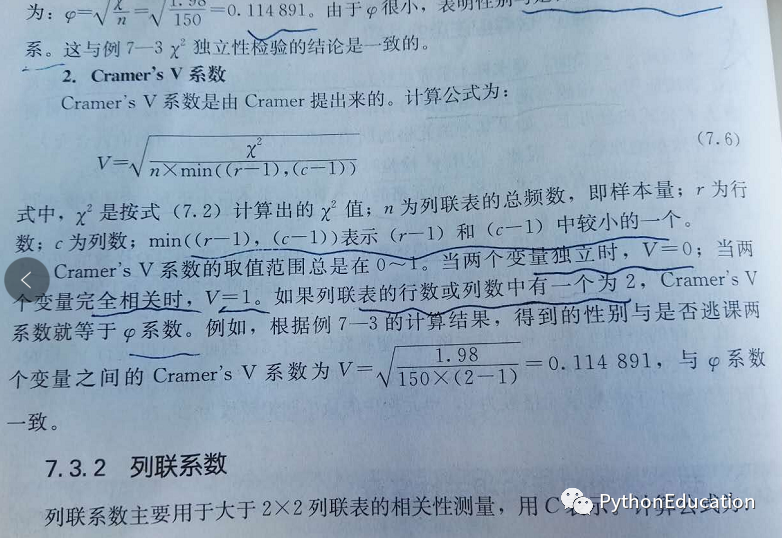 为：φ=√χ²/n=√1.98/150=0.114 891。由于φ很小，表明性别
系。这与例 7—3 χ² 独立性检验的结论是一致的。
2. Cramer's V 系数
Cramer's V 系数是由 Cramer 提出来的。计算公式为：
V=√χ²/n×min((r−1),(c−1)) (7.6)
式中，χ² 是按式（7.2）计算出的 χ² 值；n 为列联表的总频数，即样本量；r 为行
数；c 为列数；min((r−1)，(c−1))表示（r−1）和（c−1）中较小的一个。
Cramer's V 系数的取值范围总是在 0～1。当两个变量独立时，V=0；当两
个变量完全相关时，V=1。如果列联表的行数或列数中有一个为 2，Cramer's V
系数就等于 φ 系数。例如，根据例 7—3 的计算结果，得到的性别与是否逃课两
个变量之间的 Cramer's V 系数为 V=√1.98/150×(2−1)=0.114 891，与 φ 系数
一致。
7.3.2 列联系数
列联系数主要用于大于 2×2 列联表的相关性测量，用 C 表示。计算公式为：
PythonEducation